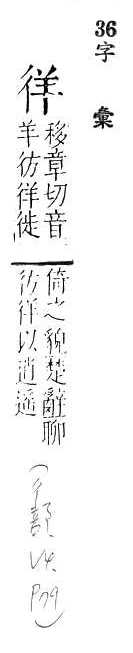 36
字彙
徉
移章切音
羊彷徉徙
倚之貌楚辭聊
彷徉以逍遥
P79